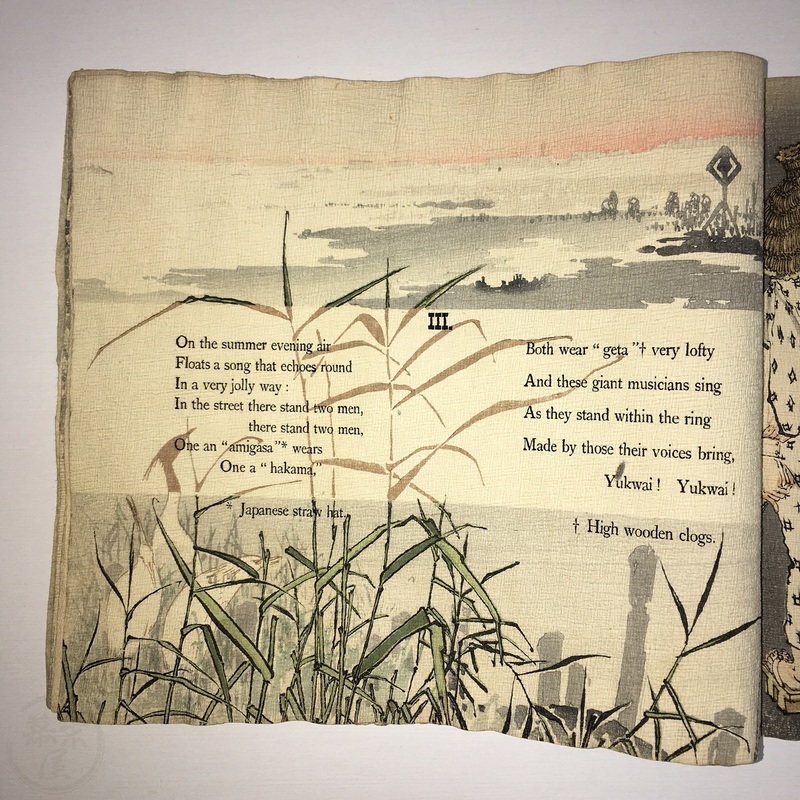 III.
On the summer evening air
Floats a song that echoes round
In a very jolly way :
In the street there stand two men,
there stand two men,
One an “amigasa”* wears
One a “ hakama,”
* Japanese straw hat.
Both wear “ geta ”† very lofty
And these giant musicians sing
As they stand within the ring
Made by those their voices bring,
Yukwai ! Yukwai !
† High wooden clogs.